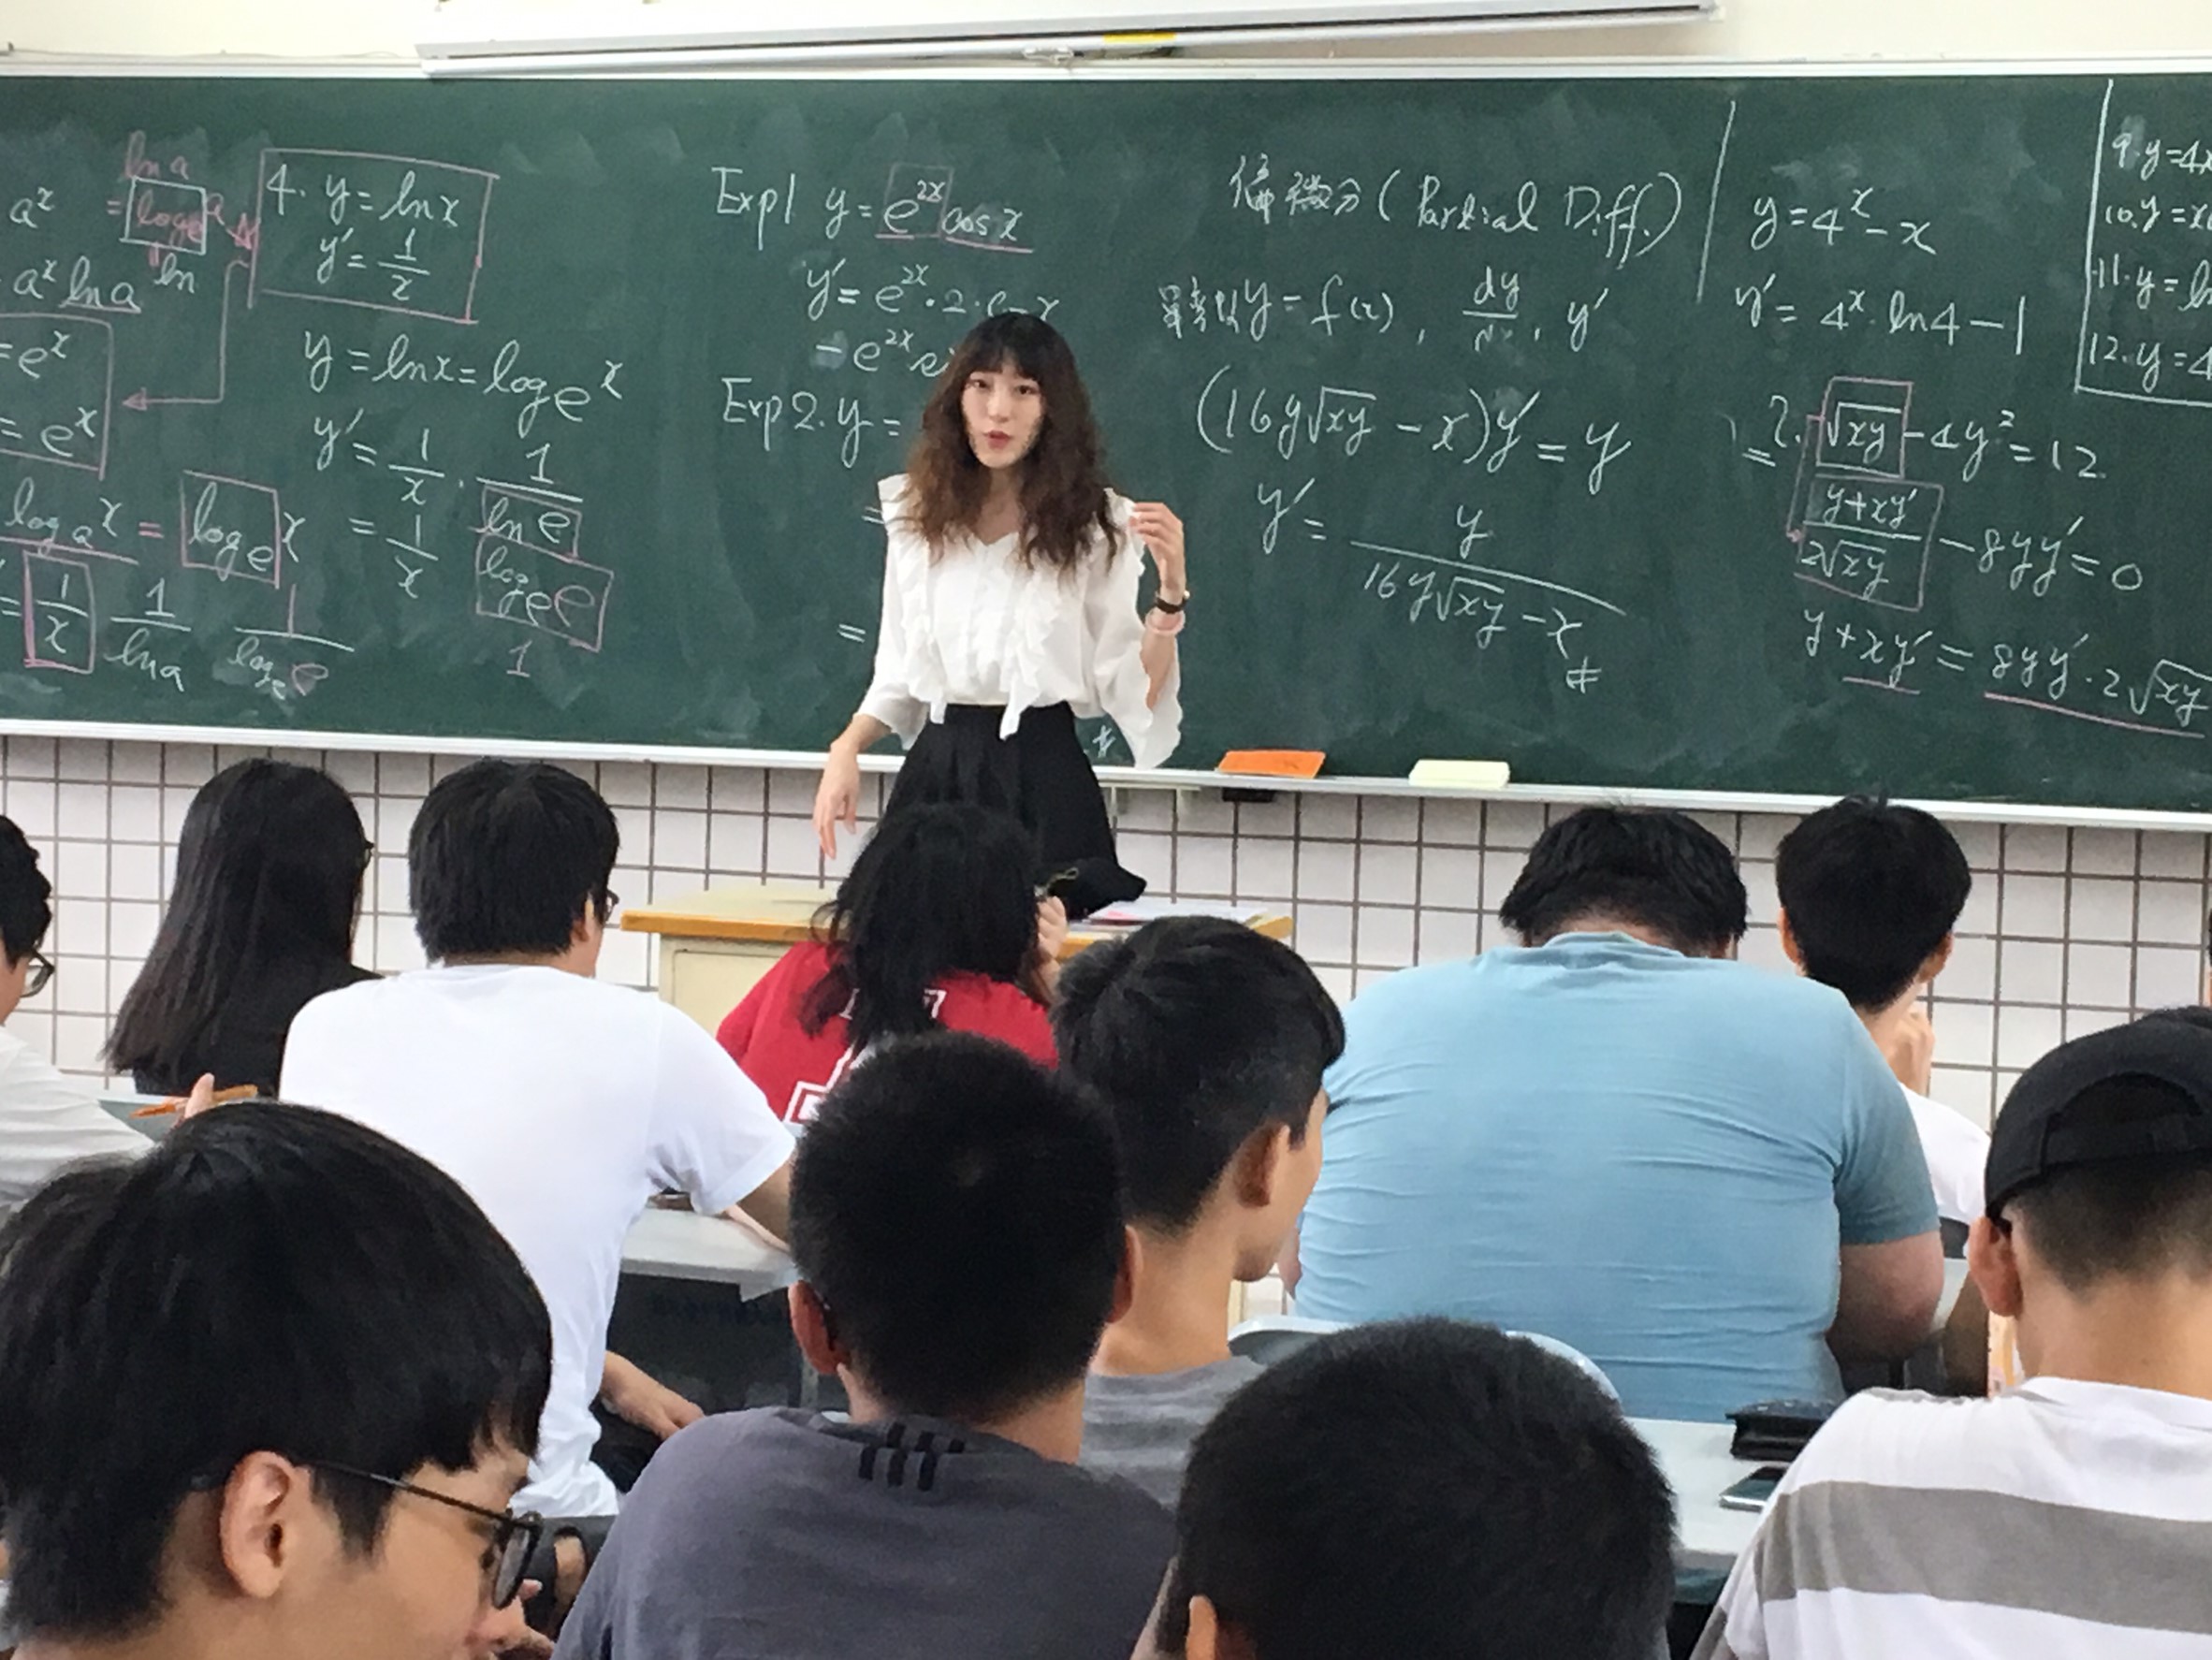 ln a
a^x = log_e a
ln
a^x ln a
= e^x
= e^x
log_a x = log_e x
= 1/x 1/ln a 1/log_e e
4. y = ln x
y' = 1/x
y = ln x = log_e x
y' = 1/x · 1/ln e
= 1/x log_e e
1
Exp1 y = e^{2x} cos x
y' = e^{2x} · 2 ·
- e^{2x}
Exp2. y =
=
=
偏微分 (Partial Diff.)
y = f(x), dy/dx, y'
(16y√xy - x)y' = y
y' = y/(16y√xy - x) #
y = 4^x - x
y' = 4^x · ln4 - 1
2. √xy - 4y^2 = 12
(y + xy')/(2√xy) - 8yy' = 0
y + xy' = 8yy' · 2√xy
9. y = 4x
10. y =
11. y = ln
12. y = 4